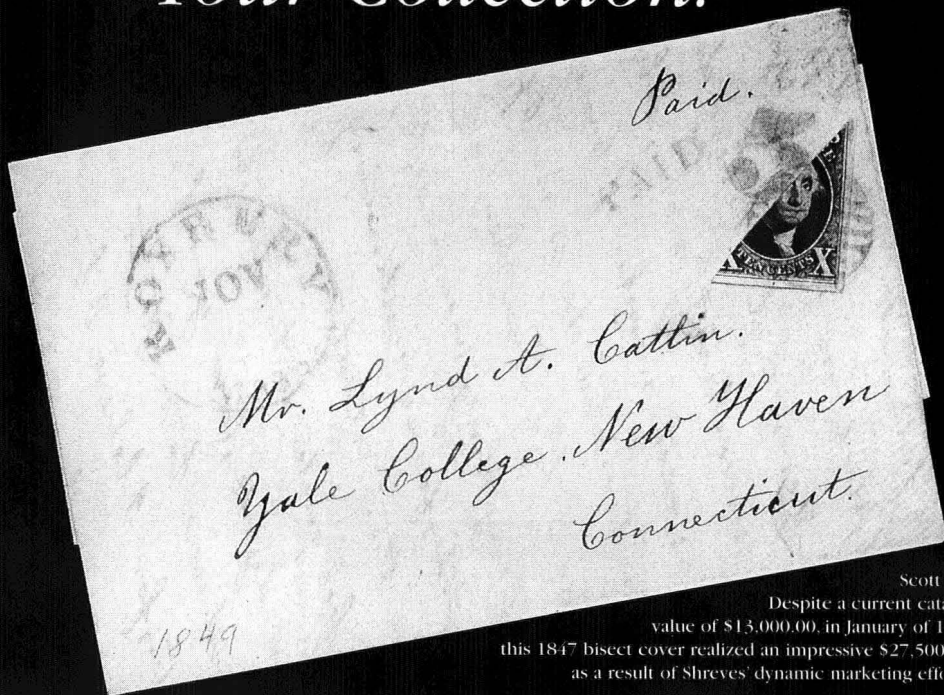 Your Collection.
Paid.
PAID
ROXBURY
NOV
X TEN CENTS X
Mr. Lynd A. Catlin.
Yale College. New Haven
Connecticut.
1849
Scott
Despite a current
value of $13,000.00, in January of
this 1847 bisect cover realized an impressive $27,500
as a result of Shreves' dynamic marketing